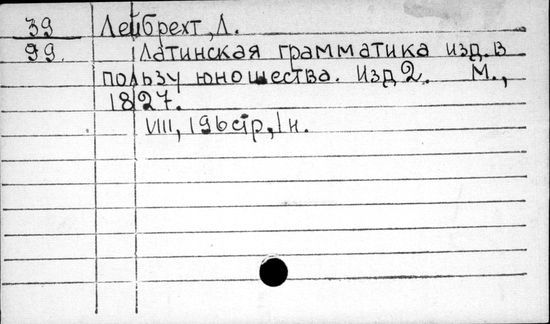 39 Лейбрехт, Л.
99. Латинская грамматика изд. в
пользу юношества. Изд 2. М.,
1827.
VIII, 196 стр, 1 н.